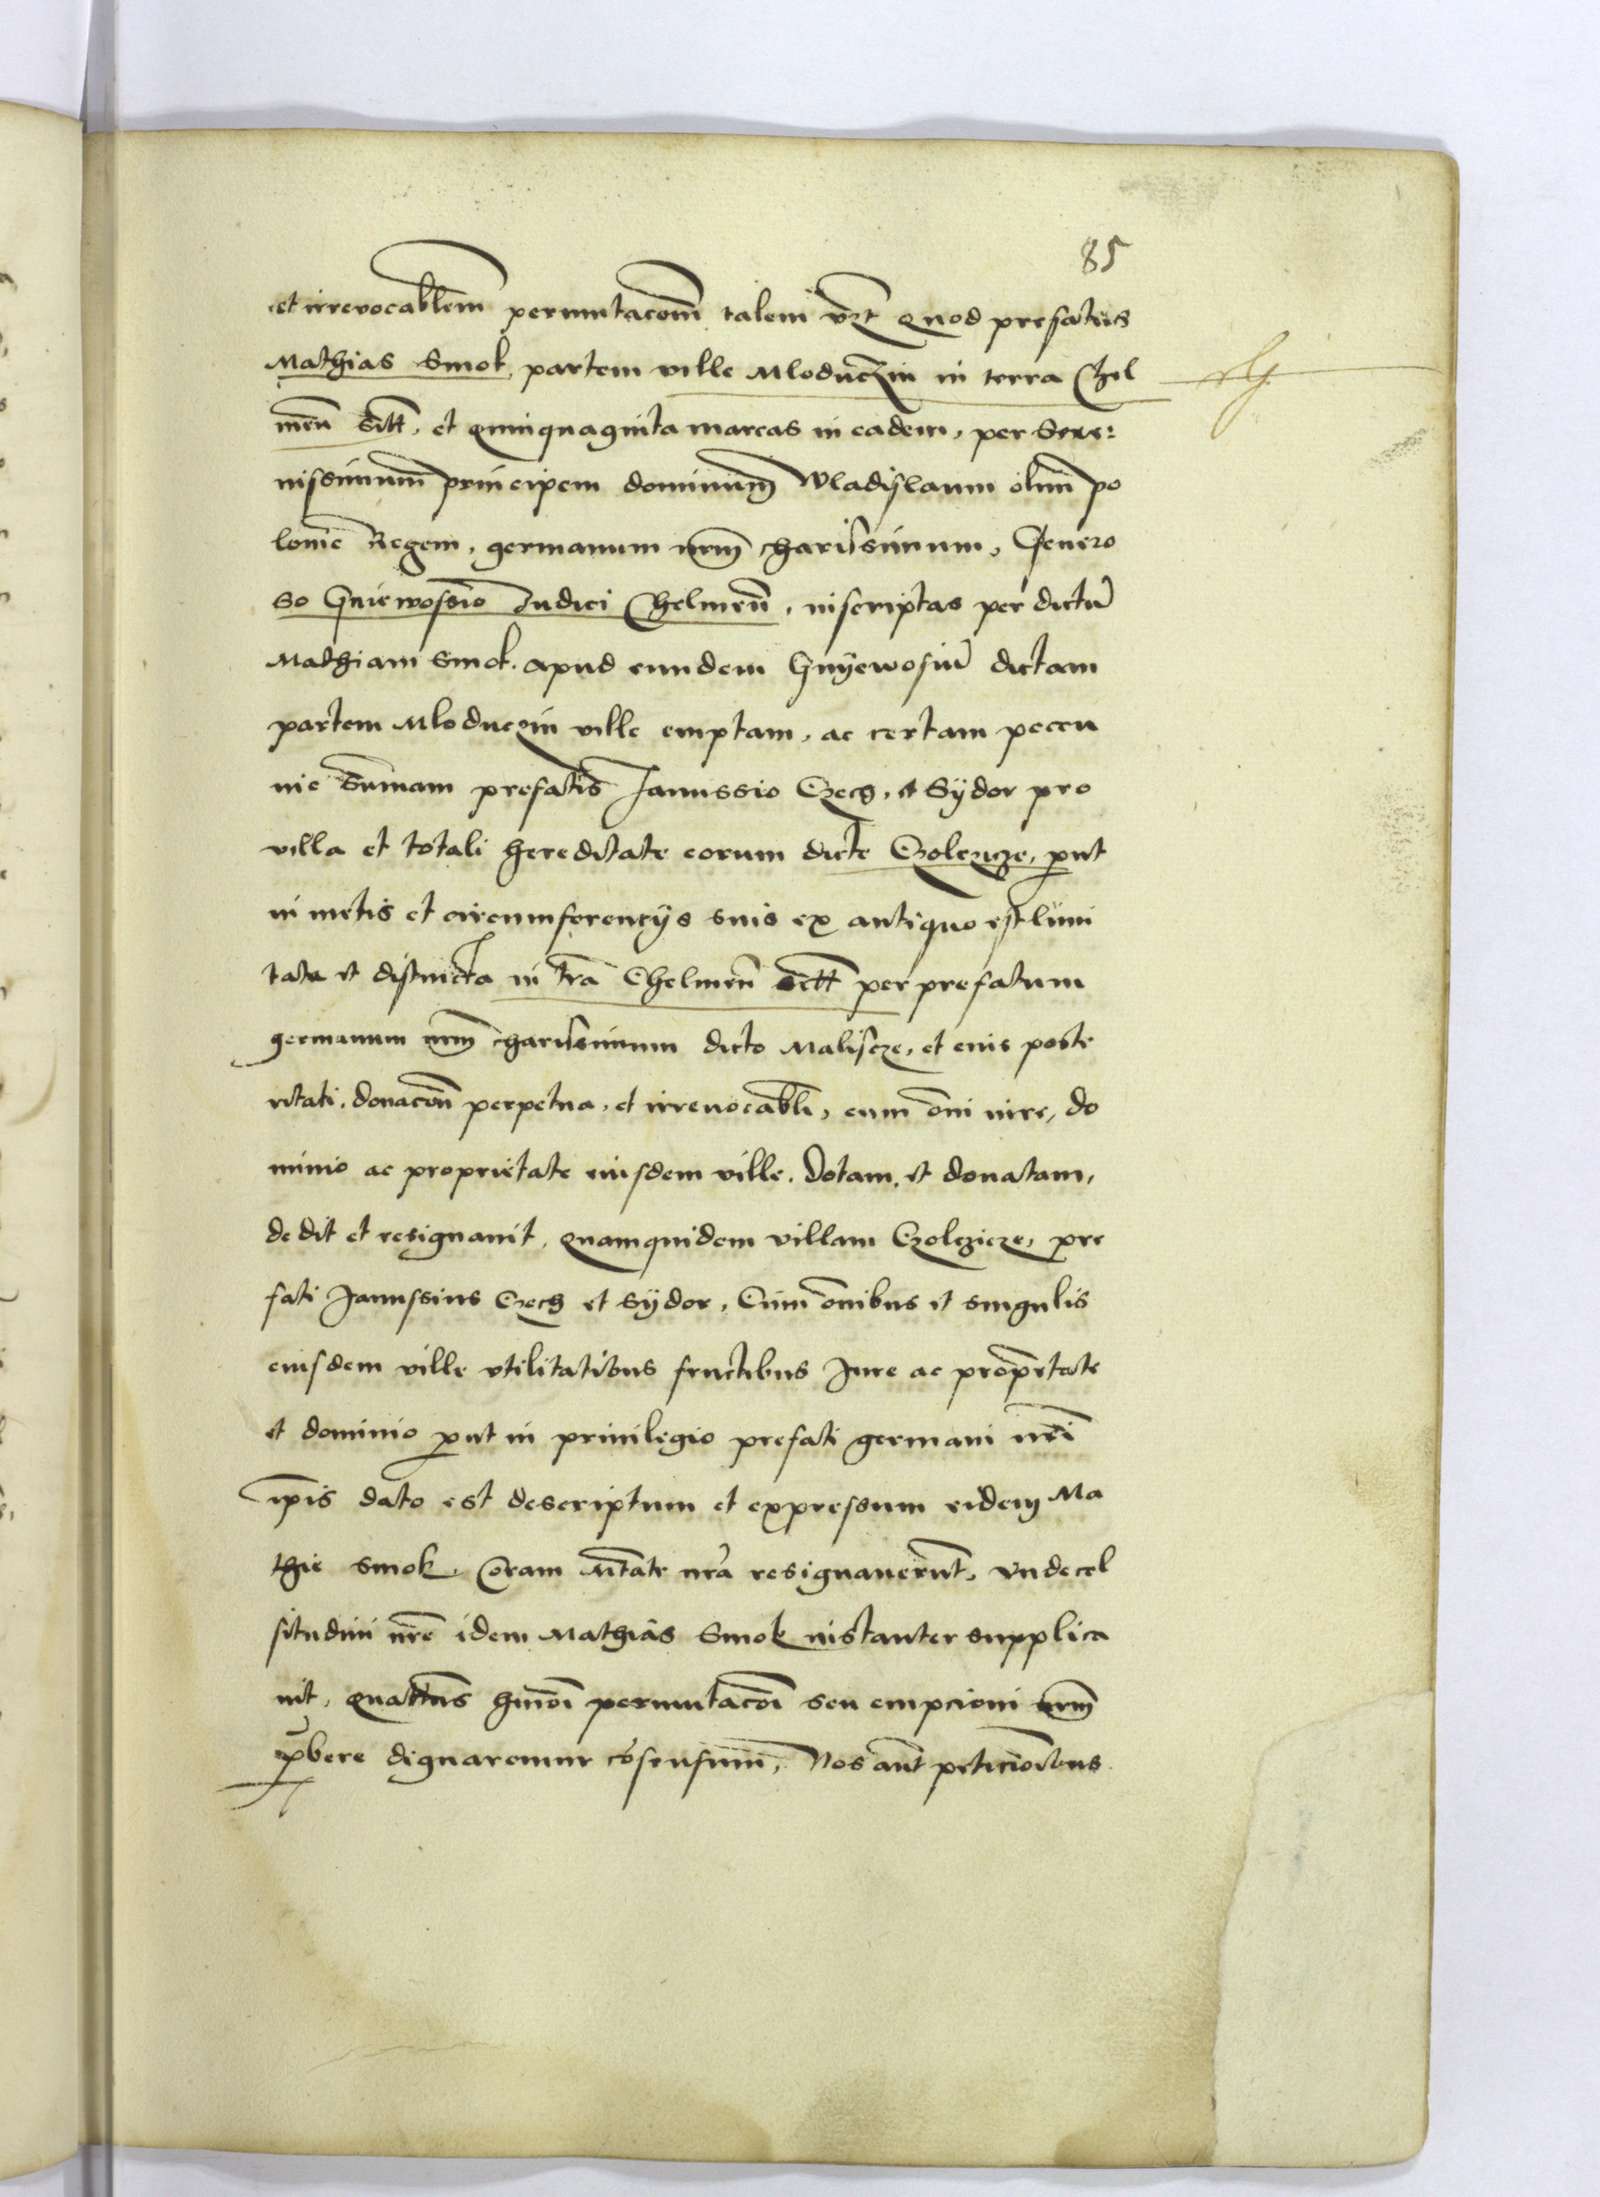 85
et irrevocablem̄ permutacōm̄ talem vz̄t Quod prefatus
Mathias Smok, partem ville Mloduczin in terra Chel
men̄ sitt̄, et quinquaginta marcas in eadem, per Sere:
nissimum principem dominum Wladislaum olim po
lonie Regem, germanum nr̄m charissimum, Genero
so Gniewossio Iudici Chelmen̄, inscriptas per dictū
Mathiam Smok. apud eundem Gnÿewosiū dictam
partem Mloduczin ville emptam, ac certam peccu
nie sum̄am prefatis Janussio Czech, et Sÿdor pro
villa et totali hereditate eorum dicte Czolczicze, put
in metis et circumferencÿs suis ex antiquo est limi
tata et distincta in tr̄a Chelmen̄ sitt̄ per prefatum
germanum nr̄m charissimum dicto Maliscze, et eius poste
ritati, donacōn̄ perpetua, et irreuocabli, cum om̄i iure, do
minio ac proprietate eiusdem ville. Dotam. et donatam,
dedit et resignauit, quamquidem villam Czolczicze, pre
fati Janussius Czech et Sÿdor, Cum om̄ibus et singulis
eiusdem ville vtilitatibus fructibus Jure ac prop̄etate
et dominio put in priuilegio prefati germani nr̄i
ip̄is dato est descriptum et expressum eidem Ma
thie Smok. Coram Mtāte nr̄a resignauerunt. Vnde cel
situdini nr̄e idem Mathias Smok instanter supplica
uit, quat̄nus hmōi permutacōi seu empcioni nr̄m
p̄bere dignaremur cōsensum, Nos aūt peticiōibus